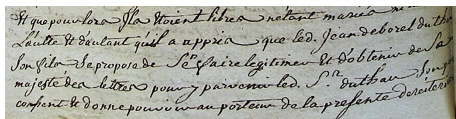 Et que pour lors Ils etoient libres netant mariés ni
Lautre Et dautant qu'il a appris que led. Jean deborel duthau
Son fils Se propose de Se faire legitimer Et d'obtenir de Sa
majesté des lettres pour y parvenir led. Sr. duthau Son
consent et donne pouvoir au porteur de la presente de reiterer